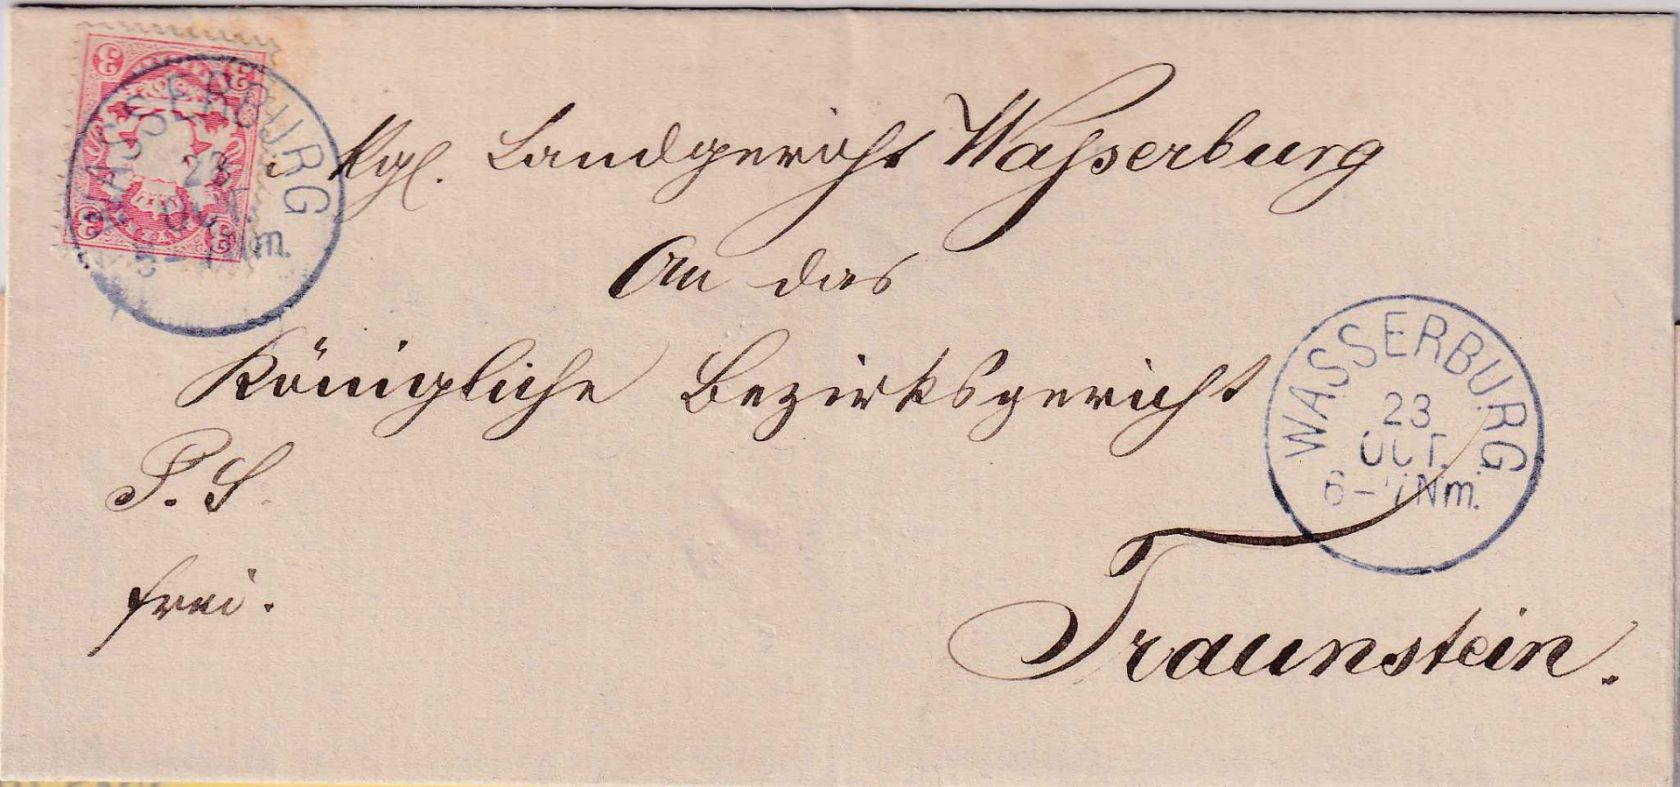 WASSERBURG
23
OCT.
3 3 3 3
Kgl. Landgericht Wasserburg
An das
Königliche Bezirksgericht
P. S.
frei.
WASSERBURG
23
OCT.
6-7 Nm.
Traunstein.